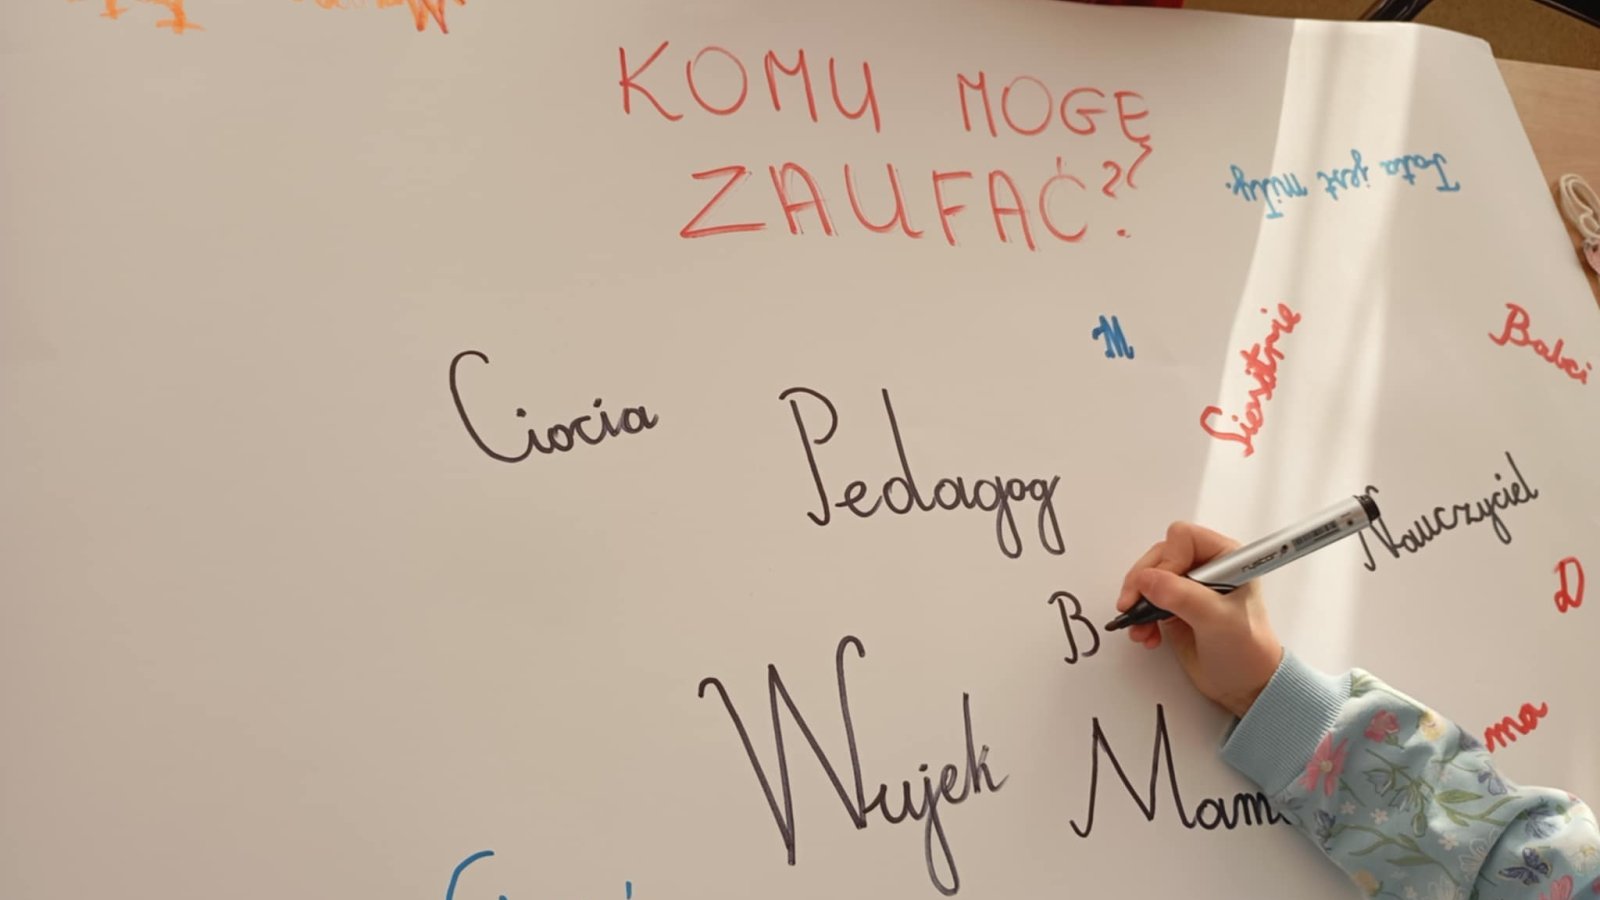 KOMU MOGĘ
ZAUFAĆ?
Tata jest miły.
M
Siostrze
Babci
Ciocia
Pedagog
Nauczyciel
B
D
Wujek
Mam
ma